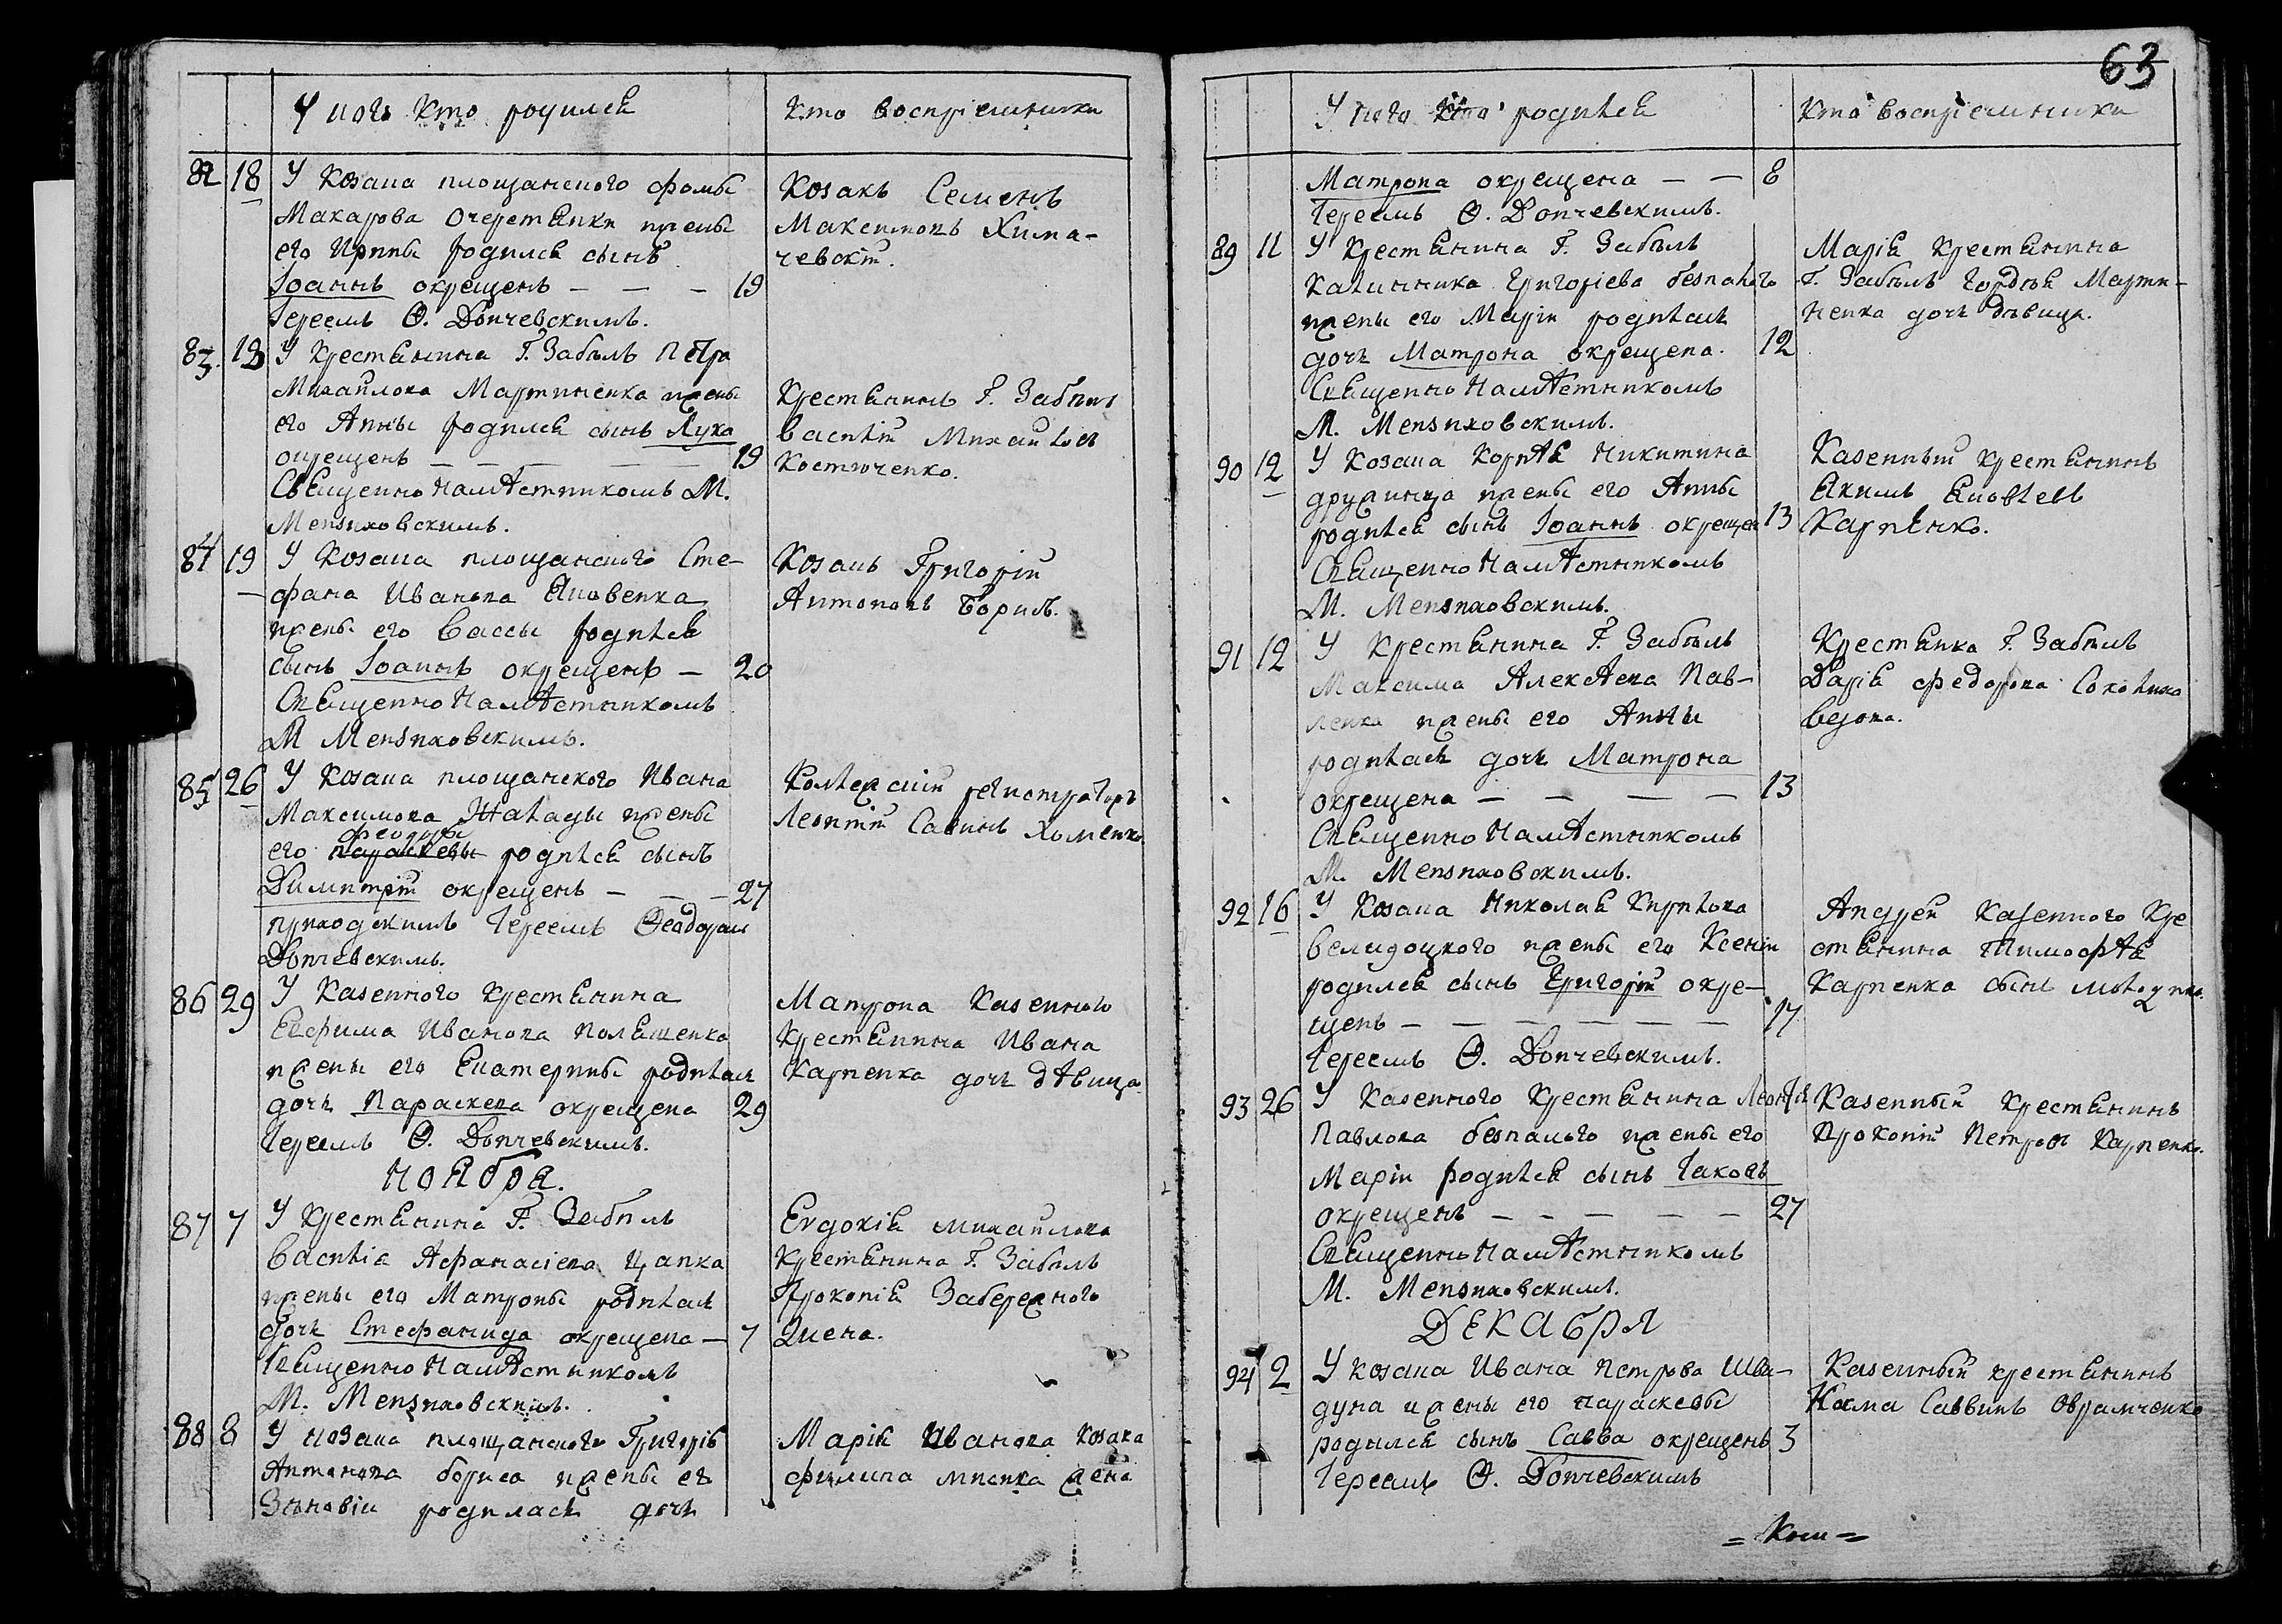 63
У кого кто родился
Кто воспріемники
82 18 У козака площанского Фомы
Макарова Очеретянки и жены
его Ирины родился сынъ
Іоаннъ окрещенъ — — — 19
Іереемъ Ѳ. Дончевскимъ.
Козакъ Семенъ
Максимовъ Хима-
чевскій.
83 18 У крестянина Г. Забѣлъ Петра
Михайлова Мартиненка и жены
его Анны родился сынъ Лука
окрещенъ — — — — — 19
Священно Намѣстникомъ М.
Мензиховскимъ.
Крестянинъ Г. Забѣлъ
Василій Михайловъ
Костюченко.
84 19 У козака площанского Сте-
фана Иванова Яковенка
и жены его Вассы родился
сынъ Іоаннъ окрещенъ — 20
Священно Намѣстникомъ
М Мензиховскимъ.
Козакъ Григорій
Антоновъ Борисъ.
85 26 У козака площанского Ивана
Максимова и жены
Феодоры
его Параскевы родился сынъ
Димитрій окрещенъ — — — 27
приходскимъ Іереемъ Ѳеодоромъ
Дончевскимъ.
Колежскій регистраторъ
Леонтій Савинъ Хоменко.
86 29 У казенного крестянина
Евфима Иванова Полященка
и жены его Екатерины родилась
дочь Параскева окрещена 29
Іереемъ Ѳ. Дончевскимъ.
Матрона казенного
крестянина Ивана
Карпенка дочь дѣвица.
Ноября.
87 7 У крестянина Г. Забѣлъ
Василія Афанасіева Цапка
и жены его Матроны родилась
дочь Стефанида окрещена — 7
Священно Намѣстникомъ
М. Мензиховскимъ.
Евдокія Михайлова
крестянина Г. Забѣлъ
Прокопія Забережного
жена.
88 8 У козака площанского Григорія
Антонова Бориса и жены его
Зѣновіи родилась дочь
Марія Иванова козака
Филипа жена
У кого кто родился
Кто воспріемники
Матрона окрещена — — 8
Іереемъ Ѳ. Дончевскимъ.
89 11 У крестянина Г. Забѣлъ
Калинника Григоріева безпалого
и жены его Маріи родилась
дочь Матрона окрещена. 12
Священно Намѣстникомъ
М. Мензиховскимъ.
Марія крестянина
Г. Забѣлъ Гордѣя Марти-
ненка дочь дѣвица.
90 12 У козака Корнѣя Никитина
и жены его Анны
родился сынъ Іоаннъ окрещен 13
Священно Намѣстникомъ
М. Мензиховскимъ.
Казенный крестянинъ
Якимъ Яковлевъ
Карпенко.
91 12 У крестянина Г. Забѣлъ
Максима Алексѣева Пав-
ленка и жены его Анны
родилась дочь Матрона
окрещена — — — — 13
Священно Намѣстникомъ
М. Мензиховскимъ.
Крестянка Г. Забѣлъ
Дарія Федорова
92 16 У козака Николая Кирилова
Велидоцкого и жены его Ксеніи
родился сынъ Григорій окре-
щенъ — — — — — — 17
Іереемъ Ѳ. Дончевскимъ.
Андрей казенного кре
стянина Тимофѣя
Карпенка сынъ
93 26 У казенного крестянина Леонтія
Павлова безпалого и жены его
Маріи родился сынъ Іаковъ
окрещенъ — — — — — 27
Священно Намѣстникомъ
М. Мензиховскимъ.
Казенный крестянинъ
Прокопій Петровъ Карпенко.
Декабря
94 2 У козака Ивана Петрова Шва-
дуна и жены его Параскевы
родился сынъ Савва окрещенъ 3
Іереемъ Ѳ. Дончевскимъ
Казенный крестянинъ
Козма Саввинъ Овраменко